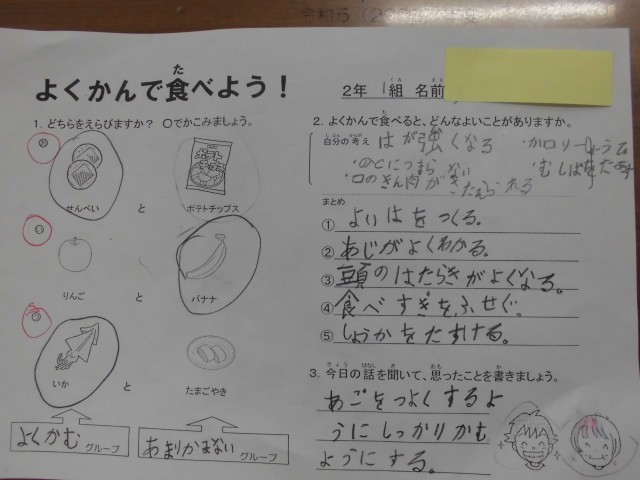 よくかんで食べよう！
2年 1組 名前
1. どちらをえらびますか？ ○でかこみましょう。
せんべい と ポテトチップス
りんご と バナナ
いか と たまごやき
よくかむ グループ
あまりかまない グループ
2. よくかんで食べると、どんなよいことがありますか。
自分の考え はが強くなる
・カロリーしょうひ
・のどにつまらない
・むしばをためす
・口のきん肉がきたえられる
まとめ
① よいはをつくる。
② あじがよくわかる。
③ 頭のはたらきがよくなる。
④ 食べすぎをふせぐ。
⑤ しょうかをたすける。
3. 今日の話を聞いて、思ったことを書きましょう。
あごをつよくするよ
うにしっかりかむ
ようにする。